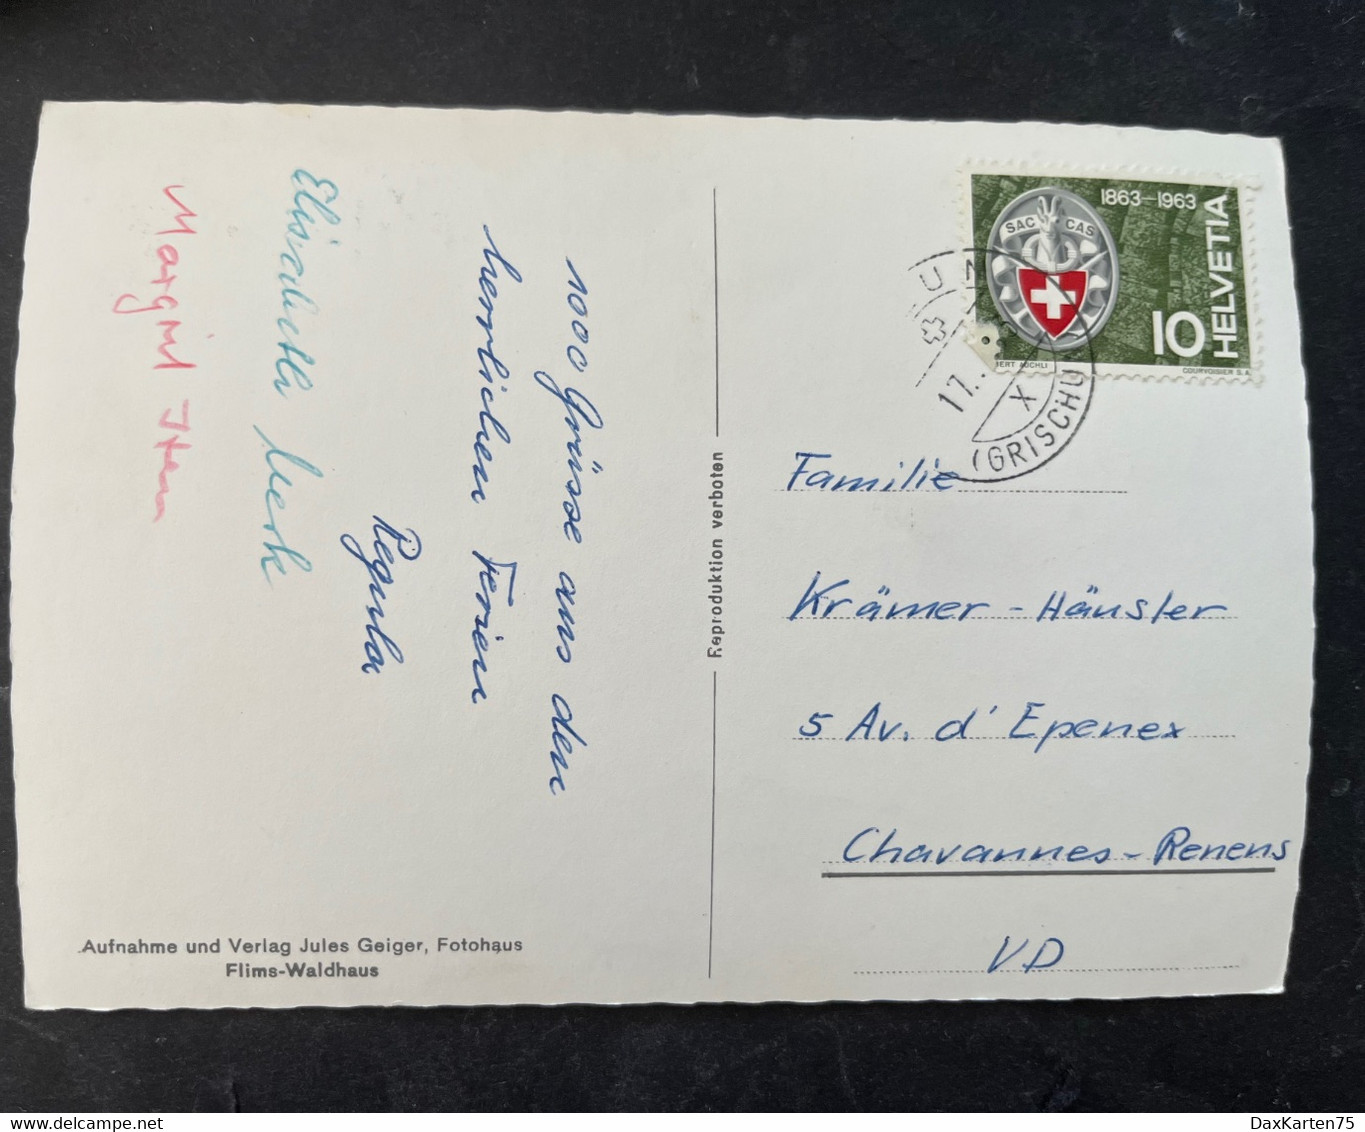 1000 Grüsse aus den
herrlichen Ferien
Regula
Elisabeth Merk
Margrit
Aufnahme und Verlag Jules Geiger, Fotohaus
Flims-Waldhaus
Reproduktion verboten
1863-1963
SAC CAS
HELVETIA
10
COURVOISIER S.A.
17.
X
(GRISCHU
Familie
Krämer-Häusler
5 Av. d'Epenex
Chavannes-Renens
VD
DaxKarten75
delcampe.net